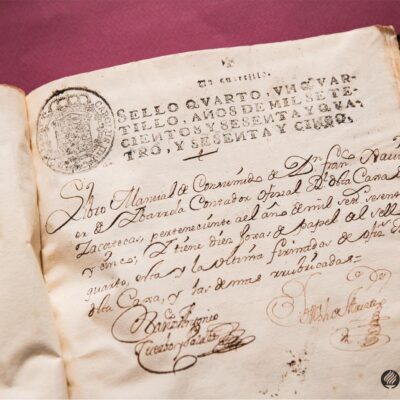 Un quartillo.
SELLO QVARTO, VN QVAR-
TILLO, AÑOS DE MIL SETE-
CIENTOS Y SESENTA Y QUA-
TRO, Y SESENTA Y CINCO.
Libro Manual de Consumido de Dn Franco Xavi
en de Ibarreda Contador Oficial Rl dela Caxa de
Zacatecas, perteneciente al año de mil setts sesenta
y cinco, y tiene diez foxas de papel del sello
quarto, esta y la ultima firmadas de
dha Caxa, y las demas rrubricadas=